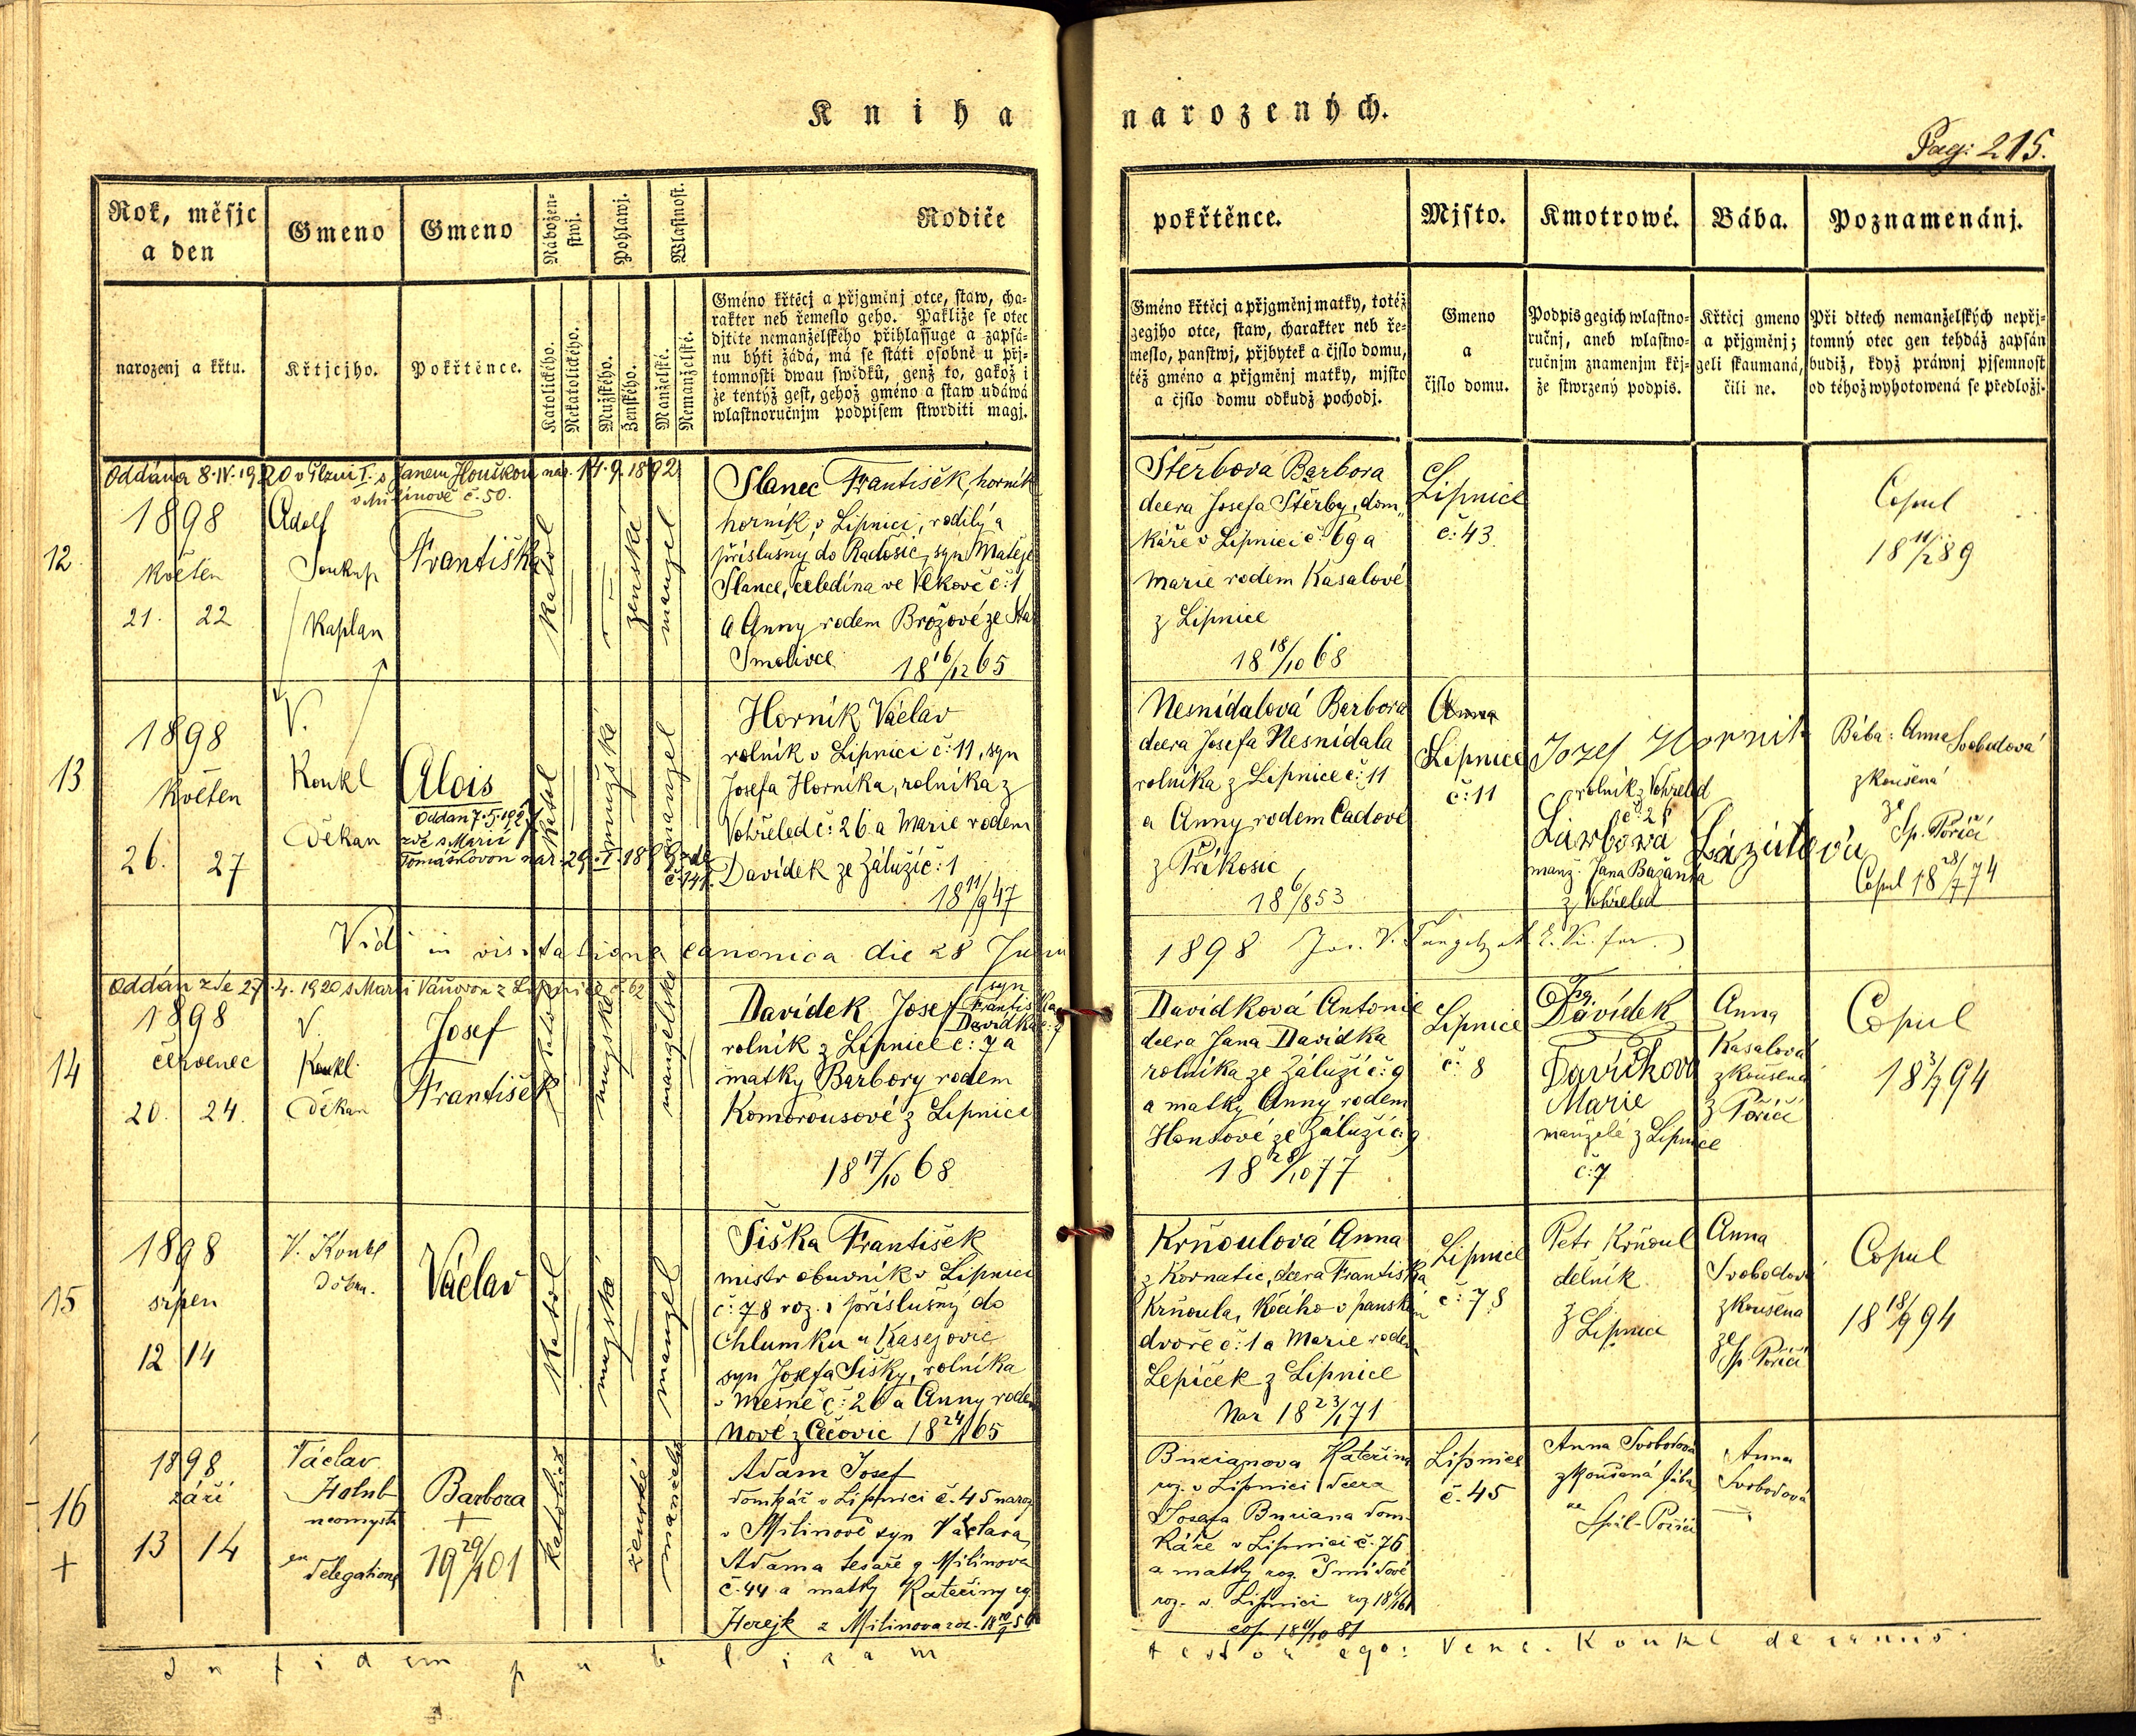 Kniha narozených.
Pag: 215.
Rok, měsjc
a den
narozenj a křtu.
Gmeno
Křtjcjho.
Gmeno
Pokřtěnce.
Nábožen-
stwj.
Katolického.
Nekatolického.
Pohlawj.
Mužského.
Ženského.
Wlastnost.
Manželské.
Nemanželské.
Rodiče
Gméno křtěcj a přjgměnj otce, staw, cha-
rakter neb řemeslo geho. Pakliže se otec
djtěte nemanželského přihlassuge a zapsá-
nu býti žádá, má se státi osobně u přj-
tomnosti dwau swědků, genž to, gakož i
že tentýž gest, gehož gméno a staw udáwá
wlastnoručnjm podpisem stwrditi magj.
pokřtěnce.
Gméno křtěcj a přjgměnj matky, totéž
gegjho otce, staw, charakter neb ře-
meslo, panstwj, přjbytek a čjslo domu,
též gméno a přjgměnj matky, mjsto
a čjslo domu odkudž pochodj.
Mjsto.
Gmeno
a
čjslo domu.
Kmotrowé.
Podpis gegich wlastno-
ručnj, aneb wlastno-
ručnjm znamenjm křj-
že stwrzený podpis.
Bába.
Křtěcj gmeno
a přjgměnj;
geli skaumaná,
čili ne.
Poznamenánj.
Při dětech nemanželských nepřj-
tomný otec gen tehdáž zapsán
budiž, když práwnj pjsemnost
od téhož wyhotowená se předložj.
Oddána 8.IV.1920 v Plzni I. s Janem Houškou nar. 14.9.1892
v Milínově č. 50.
12.
1898
květen
21. 22
Adolf
Soukup
kaplan
Františka
katol
ženské
manžel
Slanec František, horník
horník v Lipnici, rodilý a
příslušný do Radošic, syn Matěje
Slance, čeledína ve Vlkově č: 1
a Anny rodem Brožové ze Star
Smolivce 18 16/12 65
Štěrbová Barbora
dcera Josefa Štěrby, dom„
káře v Lipnici č: 69 a
Marie rodem Kasalové
z Lipnice
18 18/10 68
Lipnice
č: 43.
Copul
18 11/2 89
13
1898
květen
26. 27
V.
Konkl
děkan
Alois
Oddán 7.5.192
zde s Marií
Tomáškovou nar. 29.I.1898 zde
č. 141.
katol
mužské
manžel
Horník Václav
rolník v Lipnici č: 11, syn
Josefa Horníka, rolníka z
Vohřeled č: 26 a Marie rodem
Davídek ze Zálužíč: 1
18 11/9 47
Nesnídalová Barbora
dcera Josefa Nesnídala
rolníka z Lipnice č: 11
a Anny rodem Čadové
z Příkosic
18 6/8 53
Lipnice
č: 11
Jozef Hornik
rolník z Vohřeled
č: 26
manž. Jana Bažanta
z Vohřeled
Bába: Anna Svobodová
zkoušená
ze Sp. Poříčí
Copul 18 28/7 74
Vidi in visitatione canonica die 28 Junii 1898
Oddán zde 27.4.1920 s Marií Váňovou z Lipnice č. 62
14
1898
červenec
20. 24.
V.
Konkl
děkan
Josef
František
katol
mužské
manželské
Davídek Josef syn Františka
Davídka č: 7
rolník z Lipnice č: 7 a
matky Barbory rodem
Komorousové z Lipnice
18 17/10 68
Davídková Antonie
dcera Jana Davídka
rolníka ze Záluží č: 9
a matky Anny rodem
Hontové ze Záluží č: 9
18 28/10 77
Lipnice
č: 8
Fr. Davídek
Marie
manželé z Lipnice
č: 7
Anna
Kasalová
zkoušená
z Poříčí
Copul
18 3/7 94
15
1898
srpen
12 14
V. Konkl
děkan.
Václav
katol
mužské
manžel
Šiška František
mistr obuvník v Lipnici
č: 78 roz. i příslušný do
Chlumku u Kasejovic
syn Josefa Šišky, rolníka
v Mešně č: 26 a Anny rodem
Nové z Čečovic 18 24/1 65
Krňoulová Anna
z Kornatic, dcera Františka
Krňoula, kočího v panském
dvoře č: 1 a Marie rodem
Lepíček z Lipnice
Nar 18 23/1 71
Lipnice
č: 78
Petr Krňoul
dělník
z Lipnice
Anna
Svobodová
zkoušena
ze Sp. Poříčí
Copul
18 18/9 94
16
+
1898
září
13 14
Václav
Holub
neomysta
ex
delegatione
Barbora
+
19 29/4 01
katolické
ženské
manželské
Adam Josef
domkář v Lipnici č. 45 naroz
v Milinově syn Václava
Adama tesaře z Milinova
č. 44 a matky Kateřiny rz.
Herejk z Milinova
Bucianova Kateřina
roz. v Lipnici dcera
Josefa Buciana dom-
káře v Lipnici č. 76
a matky roz. Šmídové
roz. v Lipnici
cop. 18 11/10 81
Lipnice
č. 45
Anna Svobodová
zkoušená bába
ze
Spál-Poříčí
Anna
Svobodová
In fidem publicam testor ego: Venc. Konkl decanus.